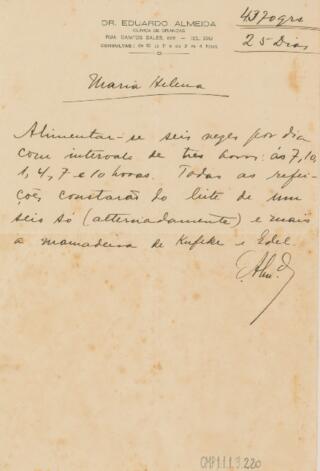 DR. EDUARDO ALMEIDA
CLINICA DE CREANÇAS
RUA CAMPOS SALES,
CONSULTAS:
4370grs
25 Dias
Maria Helena
Alimentar-se seis vezes por dia
com intervalo de tres horas: ás 7, 10,
1, 4, 7 e 10 horas. Todas as refei-
ções constarão do leite de um
seio só (alternadamente) e mais
a mamadeira de Kufeke e Edel.
CMP1.1.1.3.220